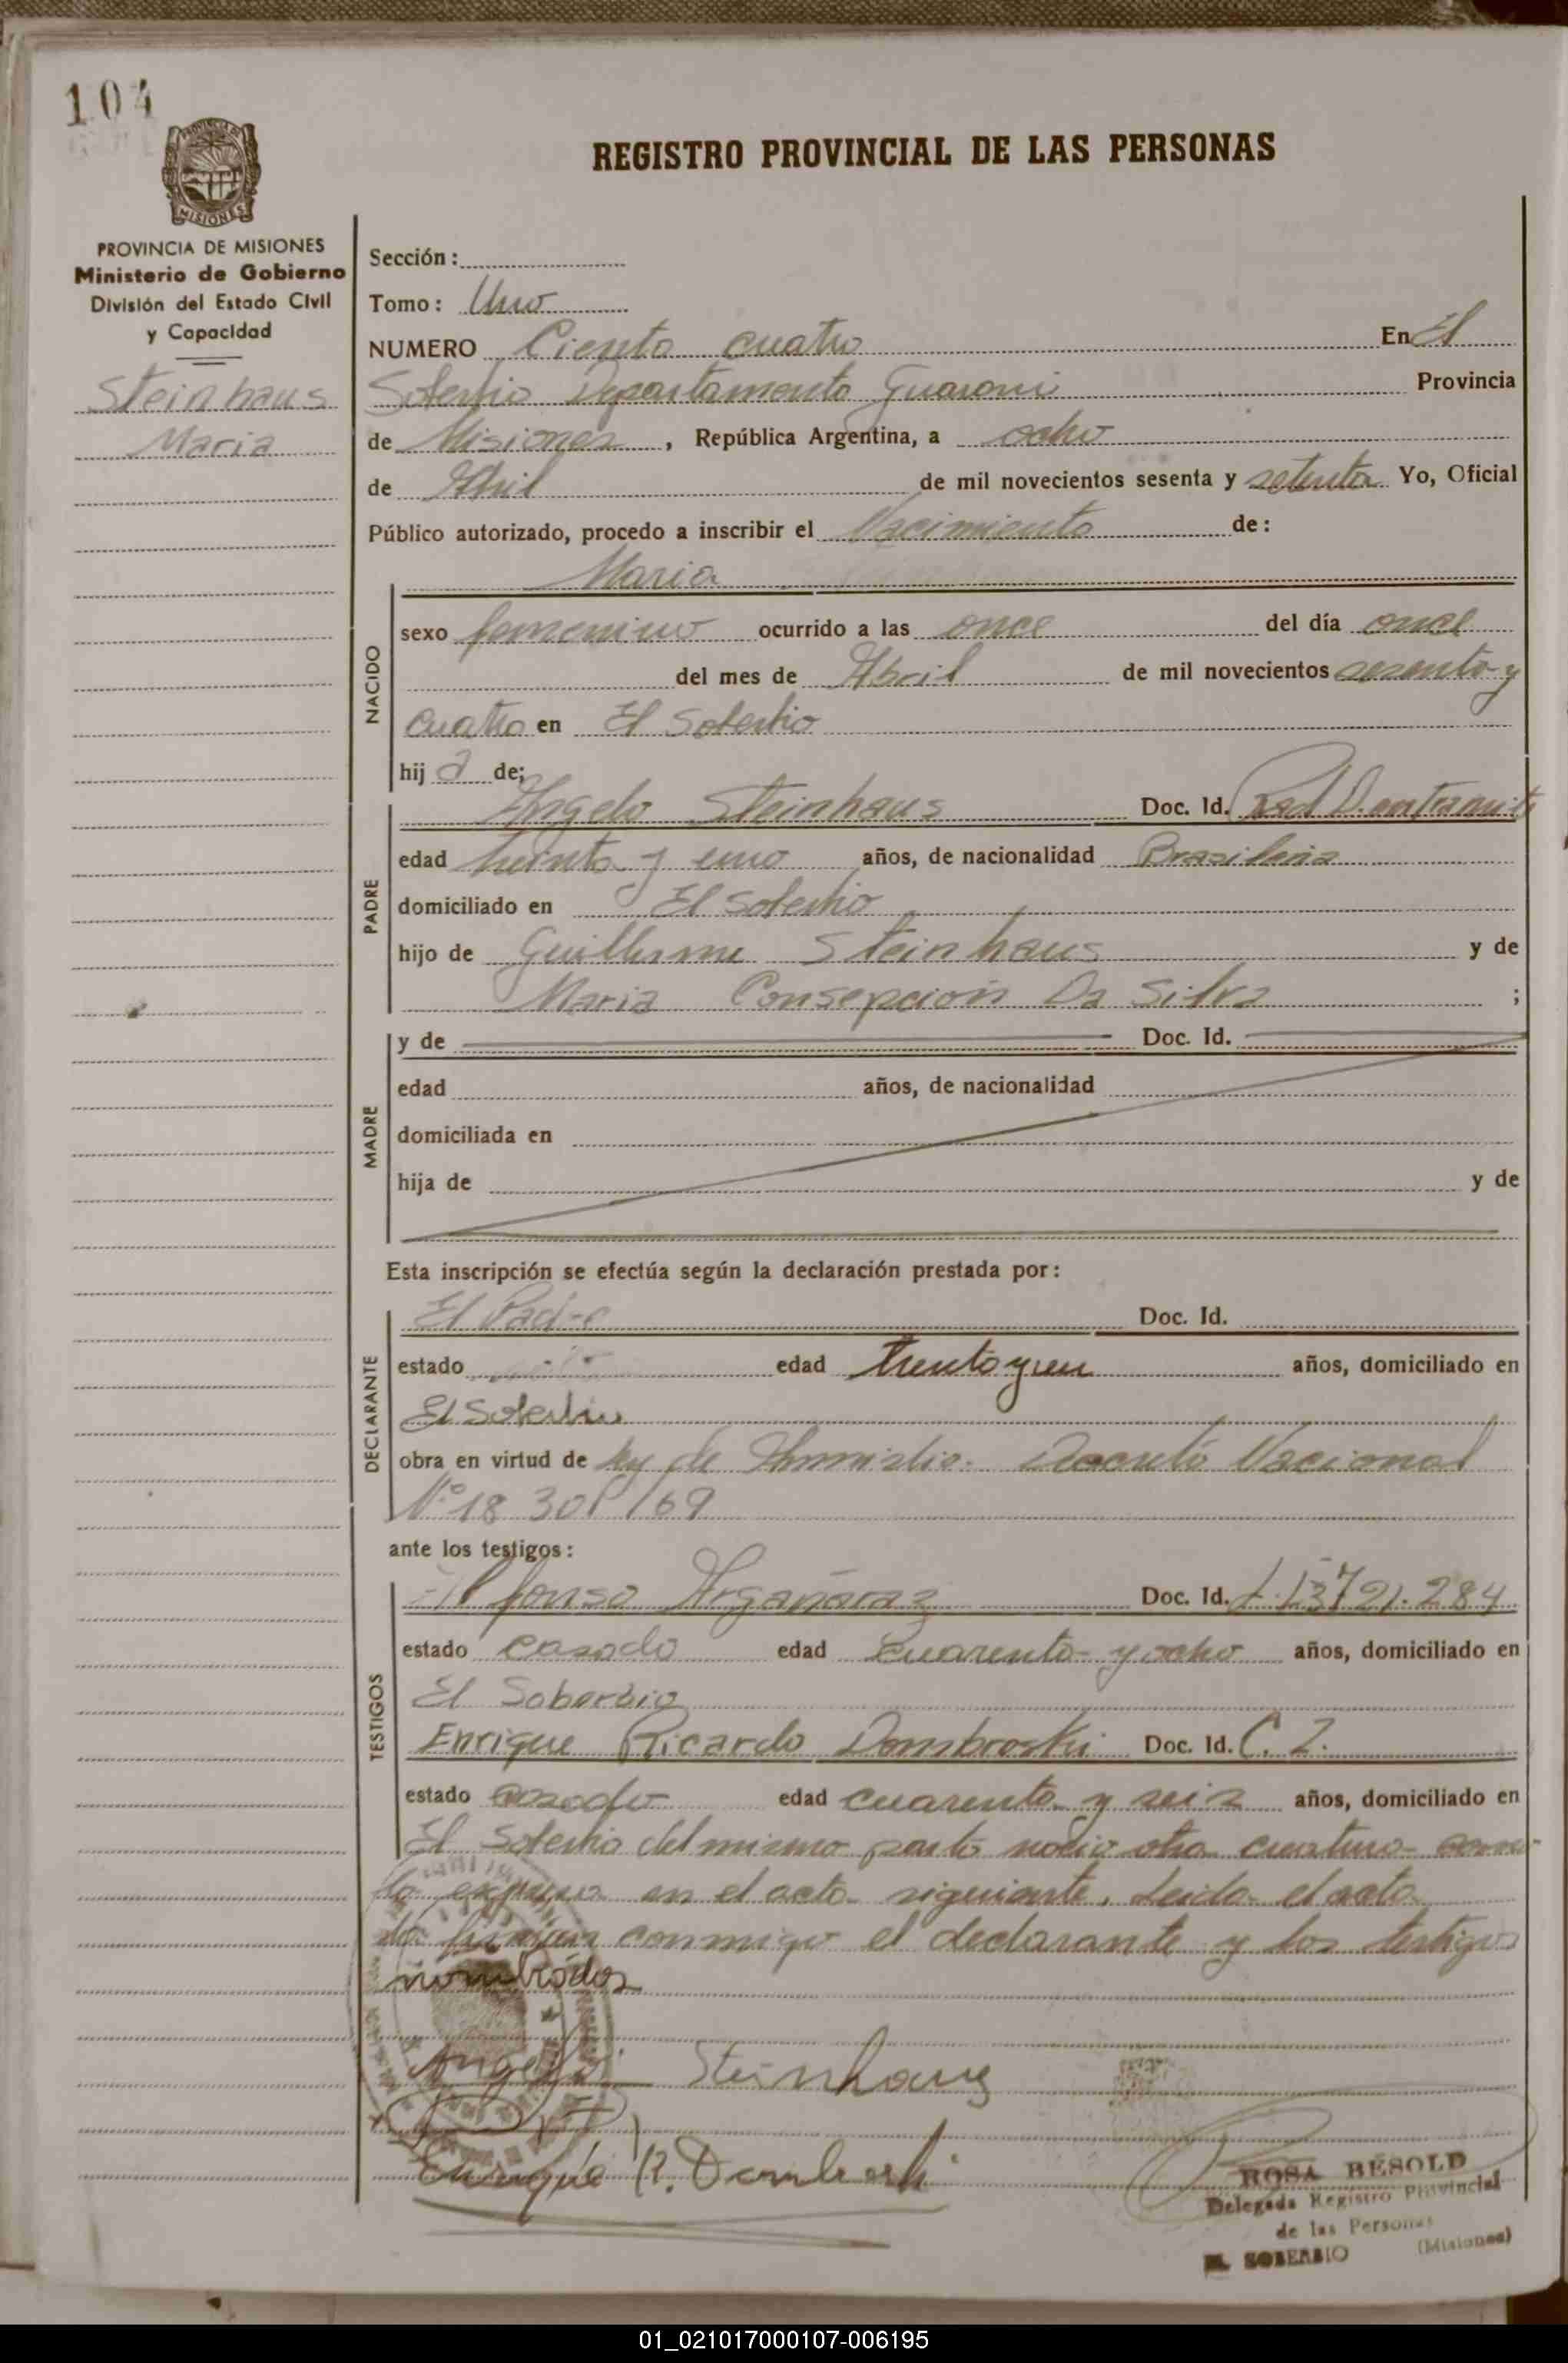 104
REGISTRO PROVINCIAL DE LAS PERSONAS
MISIONES
PROVINCIA DE MISIONES
Ministerio de Gobierno
División del Estado Civil
y Capacidad
Steinhaus
Maria
Sección:
Tomo: Uno
NUMERO Ciento cuatro En El
Soberbio Departamento Guarani Provincia
de Misiones, República Argentina, a ocho
de Abril de mil novecientos sesenta y setenta Yo, Oficial
Público autorizado, procedo a inscribir el Nacimiento de:
Maria
NACIDO
sexo femenino ocurrido a las once del día once
del mes de Abril de mil novecientos sesenta y
cuatro en El Soberbio
hij a de;
PADRE
Angelo Steinhaus Doc. Id. Rad. D. en tramite
edad treinta y uno años, de nacionalidad Brasileña
domiciliado en El Soberbio
hijo de Guillermo Steinhaus y de
Maria Consepcion Da Silva ;
MADRE
y de Doc. Id.
edad años, de nacionalidad
domiciliada en
hija de y de
Esta inscripción se efectúa según la declaración prestada por:
DECLARANTE
El Padre Doc. Id.
estado edad treinta y un años, domiciliado en
El Soberbio
obra en virtud de ley de Amnistia. Decreto Nacional
Nº 18 301/69
ante los testigos:
TESTIGOS
Alfonso Argañaraz Doc. Id. L. 13721.284
estado casado edad cuarenta y ocho años, domiciliado en
El Soberbio
Enrique Ricardo Dombroski Doc. Id. C. I.
estado casado edad cuarenta y seis años, domiciliado en
El Soberbio del mismo parto nacio otra creatura como
lo expresa en el acto siguiente. Leida el acta
la firman conmigo el declarante y los testigos
nombrados
Angelo Steinhaus
Enrique R. Dombroski
ROSA BESOLD
Delegada Registro Provincial
de las Personas
EL SOBERBIO (Misiones)
01_021017000107-006195